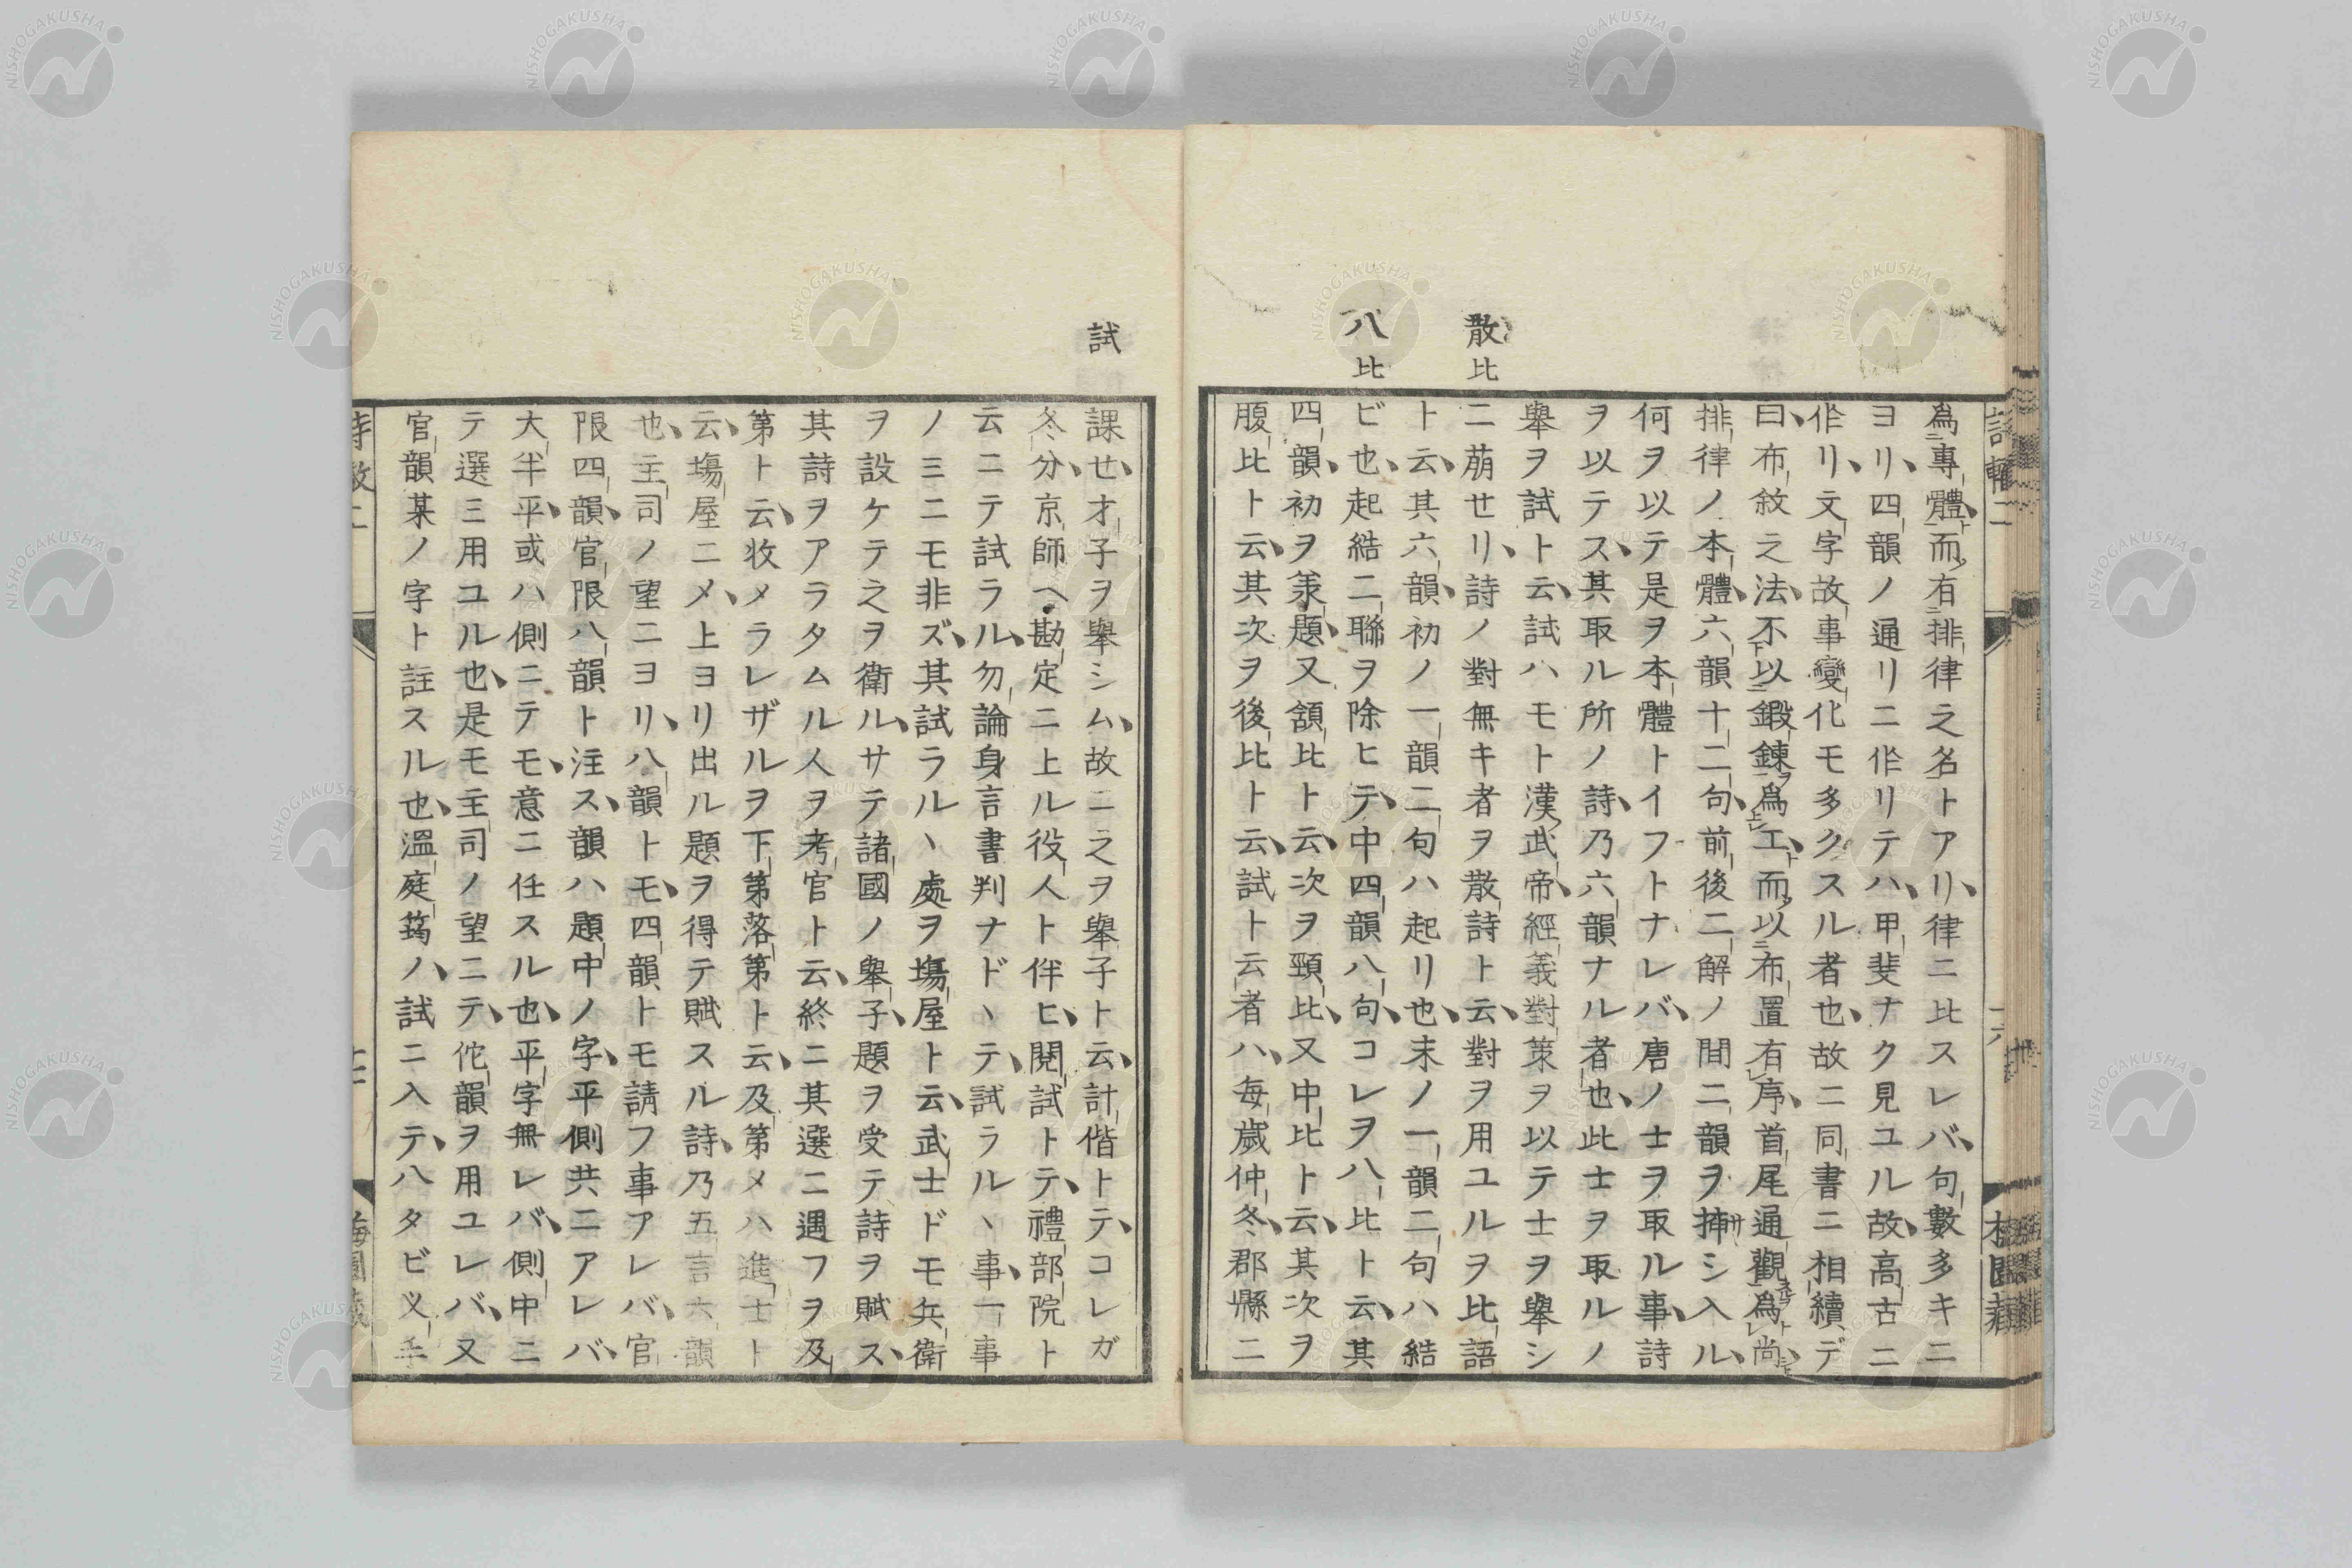 散比
八比
為專體而有排律之名トアリ、律ニ比スレバ、句數多キニ
ヨリ、四韻ノ通リニ作リテハ、甲斐ナク見ユル故、高古ニ
作リ、文字故事變化モ多クスル者也、故ニ同書ニ相續デ
曰、布敘之法、不以鍛鍊為工、而以布置有序、首尾通觀為尚、
排律ノ本體、六韻十二句、前後二解ノ間二韻ヲ挿シ入ル、
何ヲ以テ是ヲ本體トイフトナレバ、唐ノ士ヲ取ル事、詩
ヲ以テス、其取ル所ノ詩、乃六韻ナル者也、此士ヲ取ルノ
舉ヲ試ト云、試ハモト漢武帝、經義對策ヲ以テ士ヲ舉シ
ニ萠セリ、詩ノ對無キ者ヲ散詩ト云、對ヲ用ユルヲ比語
ト云、其六韻、初ノ一韻二句ハ起リ也、末ノ一韻二句ハ結
ビ也、起結二聯ヲ除ヒテ、中四韻八句、コレヲ八比ト云、其
四韻、初ヲ承題、又頷比ト云、次ヲ頸比、又中比ト云、其次ヲ
腹比ト云、其次ヲ後比ト云、試ト云者ハ、每歲仲冬、郡縣ニ
試
課せ、才子ヲ舉シム、故ニ之ヲ舉子ト云、計偕トテ、コレガ
冬分、京師ヘ勘定ニ上ル役人ト伴ヒ、閱試トテ、禮部院ト
云ニテ試ラル、勿論身言書判ナド、テ試ラル、事、一事
ノ三ニモ非ズ、其試ラル、處ヲ塲屋ト云、武士ドモ兵衛
ヲ設ケテ之ヲ衛ル、サテ諸國ノ舉子、題ヲ受テ詩ヲ賦ス、
其詩ヲアラタムル人ヲ考官ト云、終ニ其選ニ遇フヲ及
第ト云、收メラレザルヲ下第落第ト云、及第メハ進士ト
云、塲屋ニメ、上ヨリ出ル題ヲ得テ賦スル詩、乃五言六韻
也、主司ノ望ニヨリ、八韻トモ、四韻トモ請フ事アレバ、官
限四韻、官限八韻ト注ス、韻ハ題中ノ字、平側共ニアレバ、
大半平、或ハ側ニテモ、意ニ任スル也、平字無レバ、側中ニ
テ選三用ユル也、是モ主司ノ望ニテ、佗韻ヲ用ユレバ、又
官韻某ノ字ト註スル也、溫庭筠ノ、試ニ入テ、八タビ乂手